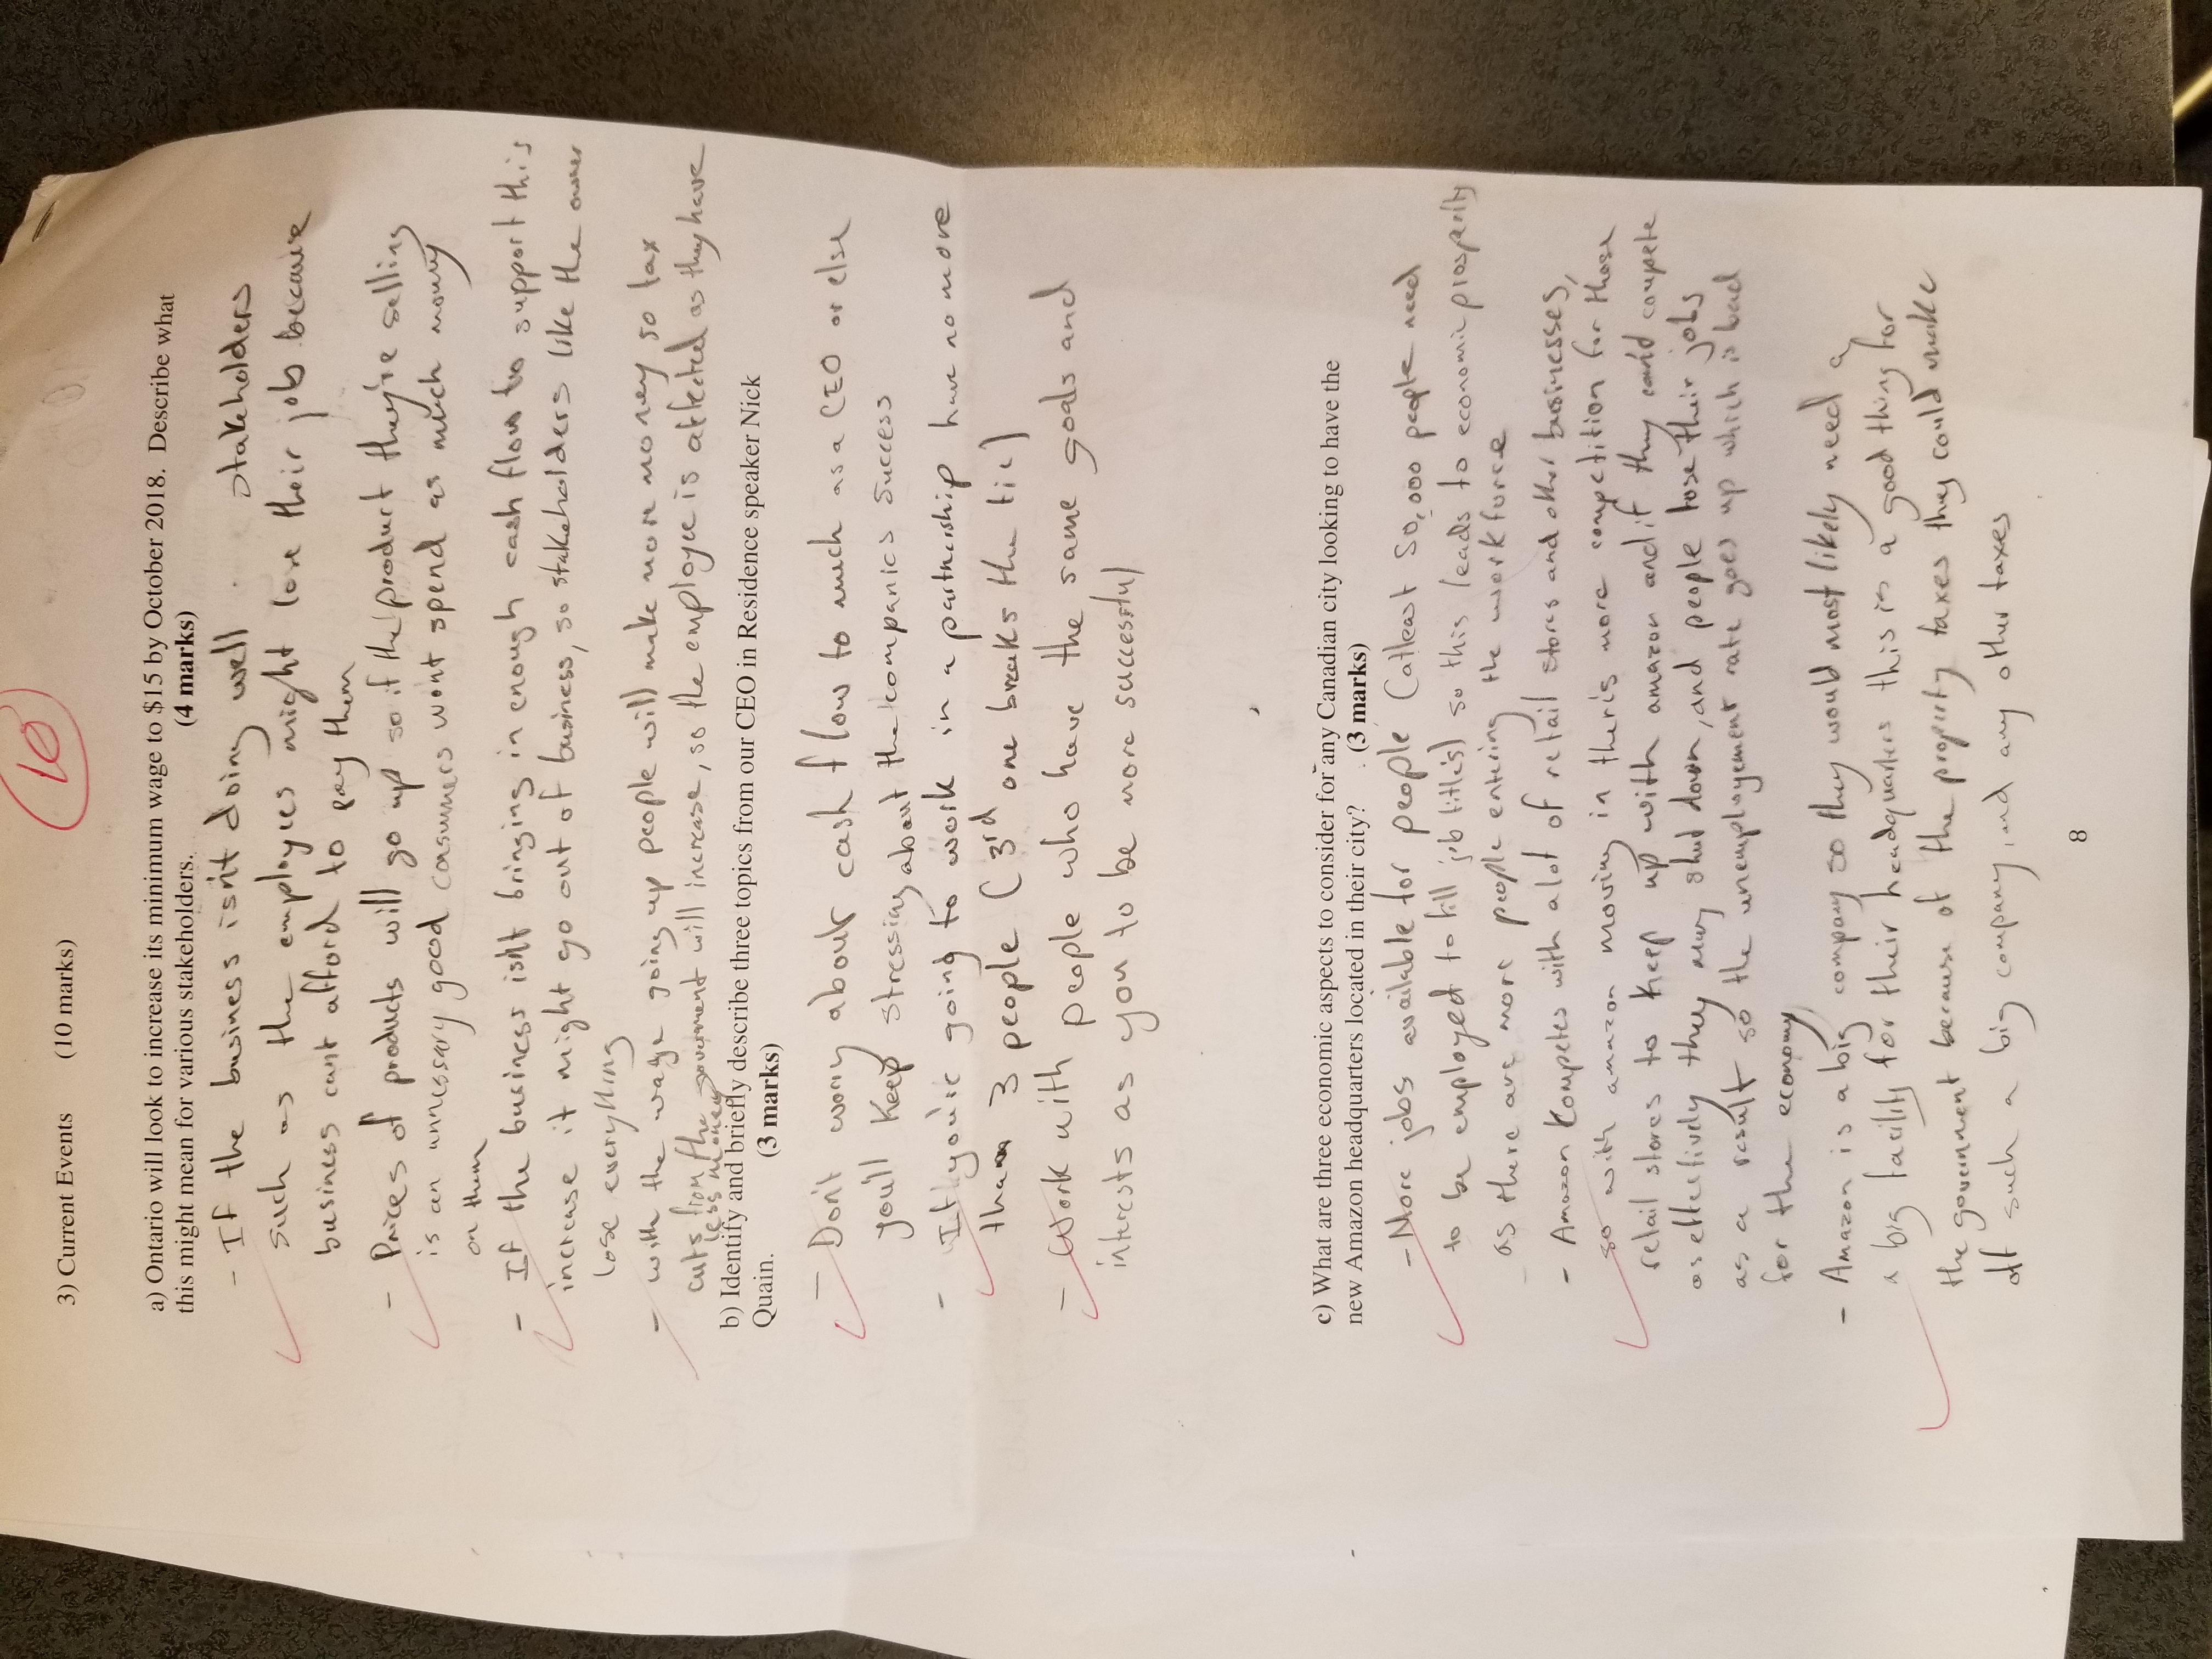 10
3) Current Events (10 marks)
a) Ontario will look to increase its minimum wage to $15 by October 2018. Describe what
this might mean for various stakeholders. (4 marks)
- If the business isn't doing well stakeholders
such as the employees might lose their job because
business cant afford to pay them
- Prices of products will go up so if the product they're selling
is an unnessary good consumers wont spend as much money
on them
- If the business isn't bringing in enough cash flow to support this
increase it might go out of business, so stakeholders like the owner
lose everything
- with the wage going up people will make more money so tax
cuts from the government will increase, so the employee is affected as they have
less money
b) Identify and briefly describe three topics from our CEO in Residence speaker Nick
Quain. (3 marks)
- Don't worry about cash flow to much as a CEO or else
you'll keep stressing about the companies success
- If you're going to work in a partnership have no more
than 3 people (3rd one breaks the tie)
- Work with people who have the same goals and
interests as you to be more successful
c) What are three economic aspects to consider for any Canadian city looking to have the
new Amazon headquarters located in their city? (3 marks)
- More jobs available for people (atleast 50,000 people need
to be employed to fill job titles) so this leads to economic prosperity
as there are more people entering the workforce
- Amazon Competes with alot of retail stores and other businesses,
so with amazon moving in theris more competition for those
retail stores to keep up with amazon and if they can't compete
as effectively they may shut down, and people lose their jobs
as a result so the unemployement rate goes up which is bad
for the economy
- Amazon is a big company so they would most likely need a
a big facility for their headquarters this is a good thing for
the government because of the property taxes they could make
off such a big company, and any other taxes
8